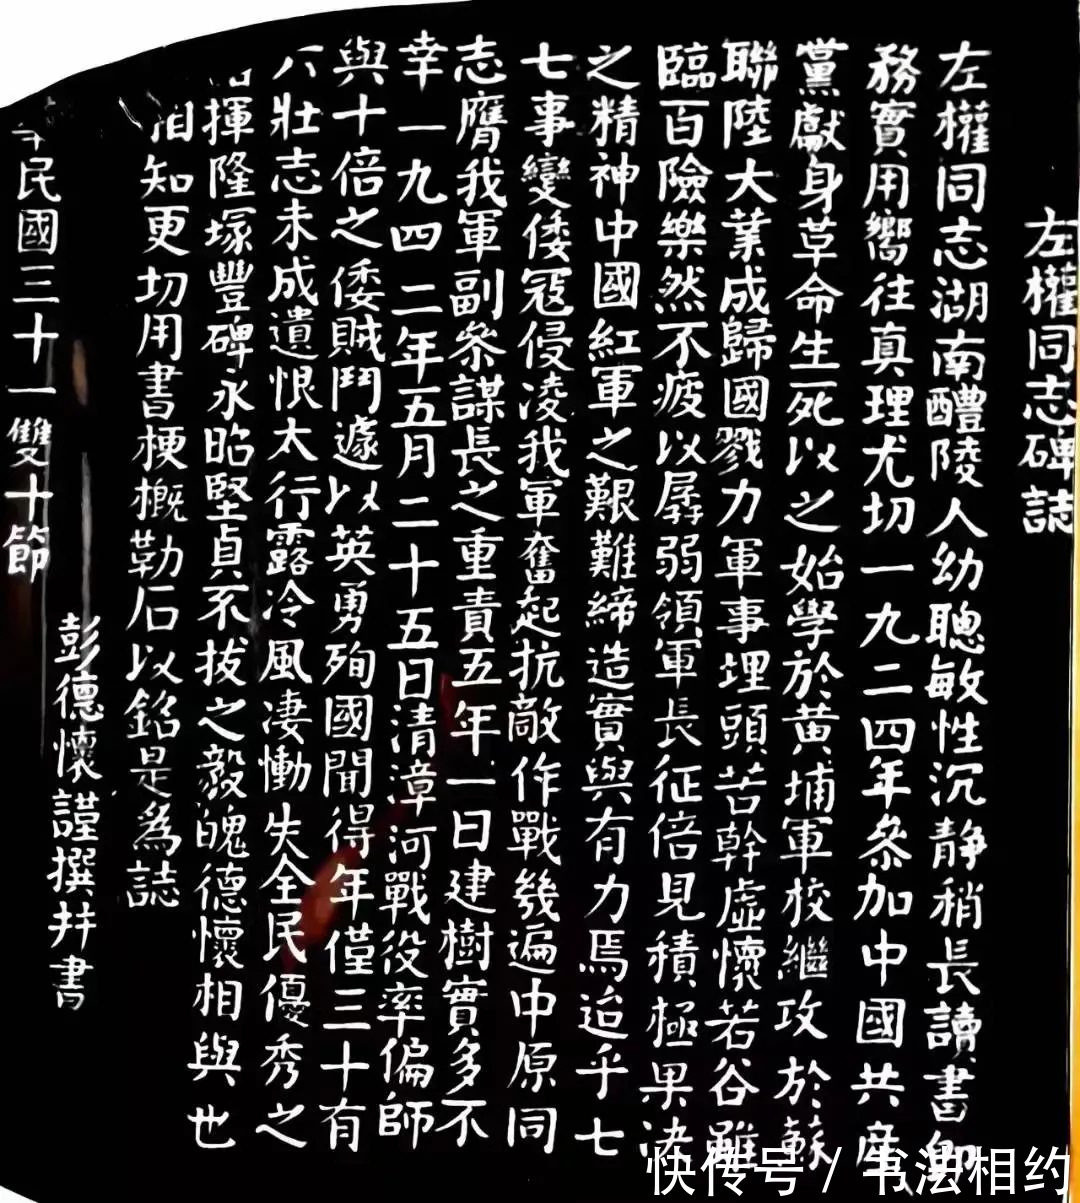 左權同志碑誌
左權同志湖南醴陵人幼聰敏性沉静稍長讀書卽
務實用嚮往真理尤切一九二四年參加中國共產
黨獻身革命生死以之始學於黄埔軍校繼攻於蘇
聯陸大業成歸國戮力軍事埋頭苦幹虛懷若谷雖
臨百險樂然不疲以孱弱領軍長征倍見積極果
之精神中國紅軍之艱難締造實與有力焉迨乎七
七事變倭寇侵凌我軍奮起抗敵作戰幾遍中原同
志膺我軍副參謀長之重責五年一日建樹實多不
幸一九四二年五月二十五日清漳河戰役率偏師
與十倍之倭賊鬥遽以英勇殉國聞得年僅三十有
六壯志未成遺恨太行露冷風淒慟失全民優秀之
揮隆塚豐碑永昭堅貞不拔之毅魄德懷相與也
相知更切用書梗概勒石以銘是為誌
彭德懷謹撰并書
民國三十一雙十節
快传号 / 书法相约